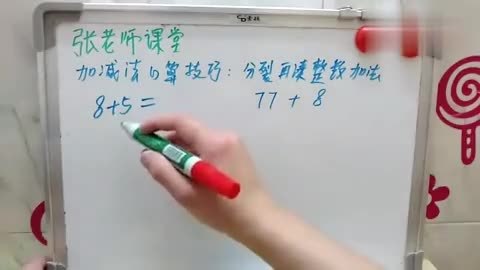 张老师课堂
加减法口算技巧：分裂再凑整数加法
8+5=
77+8